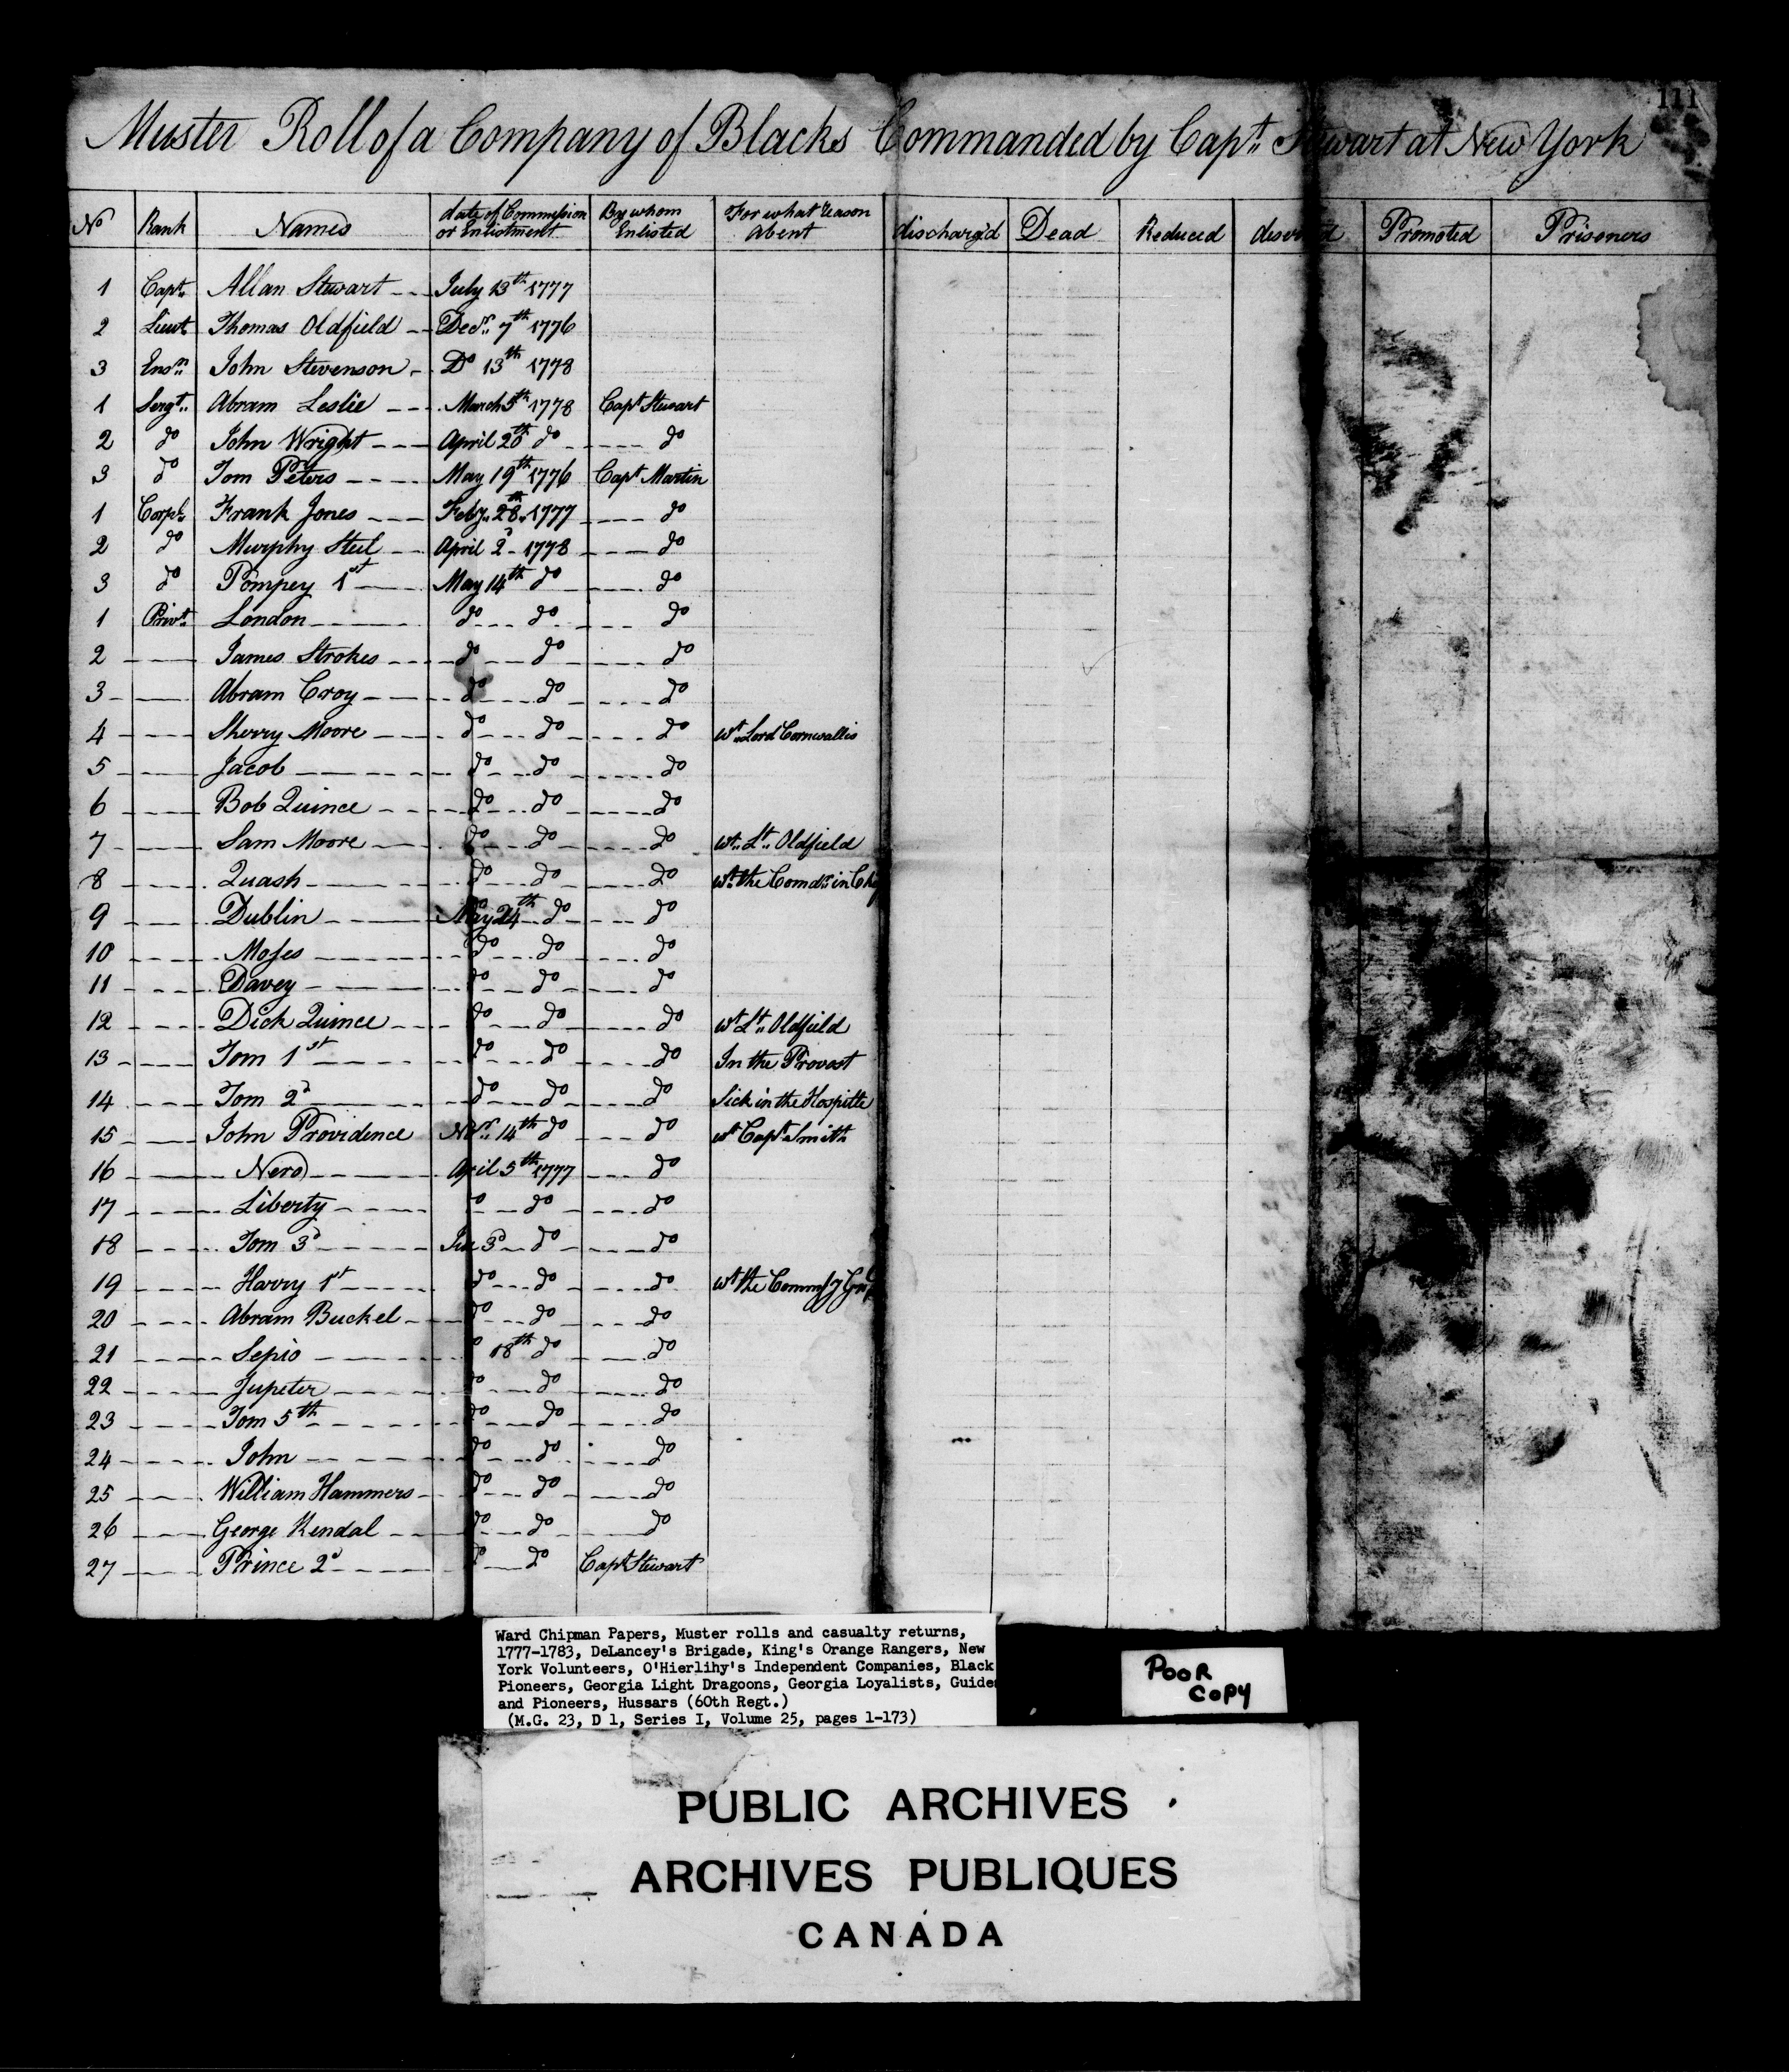 111
Muster Roll of a Company of Blacks Commanded by Capt. Stewart at New York
No Rank Names date of Commission or Enlistment By whom Enlisted For what reason absent discharg'd Dead Reduced deserted Promoted Prisoners
1 Capt. Allan Stewart July 13th 1777
2 Lieut. Thomas Oldfield Decr. 7th 1776
3 Ensn. John Stevenson Do 13th 1778
1 Sergt. Abram Leslie March 5th 1778 Capt Stewart
2 do John Wright April 20th do do
3 do Tom Peters May 19th 1776 Capt Martin
1 Corpl. Frank Jones Feby. 28th 1777 do
2 do Murphy Steel April 2d 1778 do
3 do Pompey 1st May 14th do do
1 Privt. London do do do
2 James Strokes do do do
3 Abram Croy do do do
4 Sherry Moore do do do wt. Lord Cornwallis
5 Jacob do do do
6 Bob Quince do do do
7 Sam Moore do do do wt. Lt. Oldfield
8 Quash do do do wt. the Comdr. in
9 Dublin May 24th do do
10 Moses do do do
11 Davey do do do
12 Dick Quince do do do wt Lt. Oldfield
13 Tom 1st do do do In the Provost
14 Tom 2d do do do Sick in the Hospitle
15 John Providence Novr. 14th do do wt Capt Smith
16 Nero April 5th 1777 do
17 Liberty do do do
18 Tom 3d 3d do do
19 Harry 1st do do do wt the
20 Abram Buckel do do do
21 Sepio do 18th do do
22 Jupiter do do do
23 Tom 5th do do do
24 John do do do
25 William Hammers do do do
26 George Kendal do do do
27 Prince 2d do do Capt Stewart
Ward Chipman Papers, Muster rolls and casualty returns,
1777-1783, DeLancey's Brigade, King's Orange Rangers, New
York Volunteers, O'Hierlihy's Independent Companies, Black
Pioneers, Georgia Light Dragoons, Georgia Loyalists, Guides
and Pioneers, Hussars (60th Regt.)
(M.G. 23, D 1, Series I, Volume 25, pages 1-173)
POOR
COPY
PUBLIC ARCHIVES
ARCHIVES PUBLIQUES
CANADA